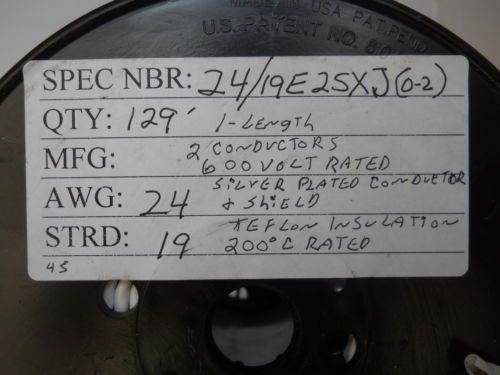 MADE IN USA PAT. PEND.
U.S. PATENT NO.
SPEC NBR: 24/19E2SXJ(0-2)
QTY: 129' 1-LENGTH
MFG: 2 CONDUCTORS
600 VOLT RATED
AWG: 24 SILVER PLATED CONDUCTOR
& SHIELD
STRD: 19 TEFLON INSULATION
200°C RATED
45